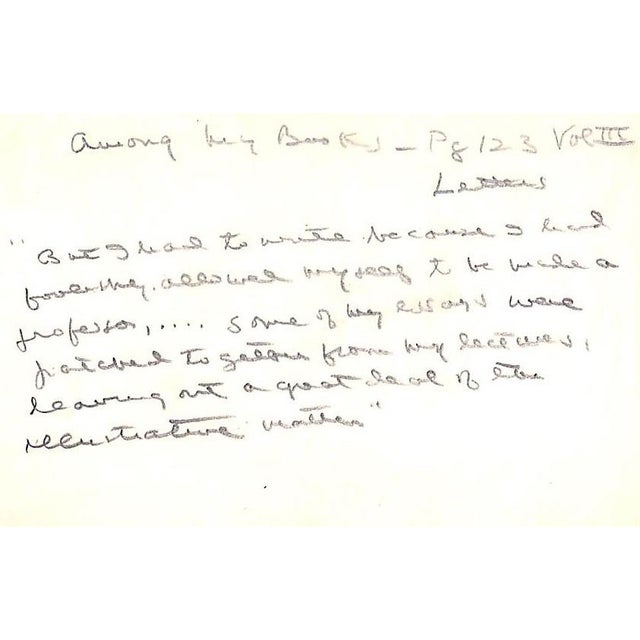 Among My Books - Pg 123 Vol III
Letters
"But I had to write because I had
foolishly allowed myself to be made a
professor, ..... Some of my essays were
patched together from my lectures,
leaving out a great deal of the
illustrative matter"